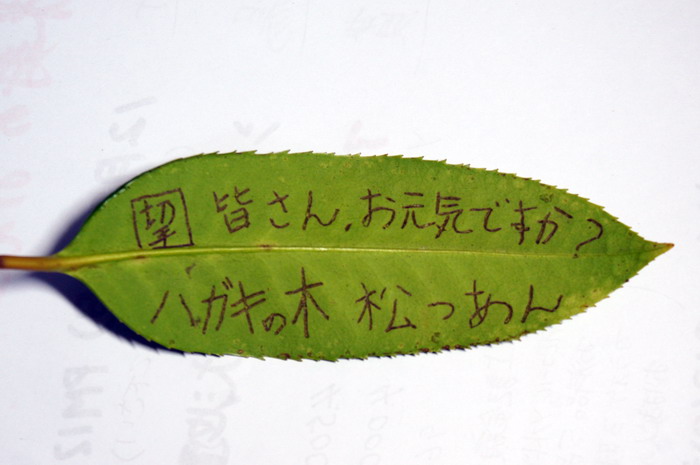 皆さん、お元気ですか?
ハガキの木 松つあん